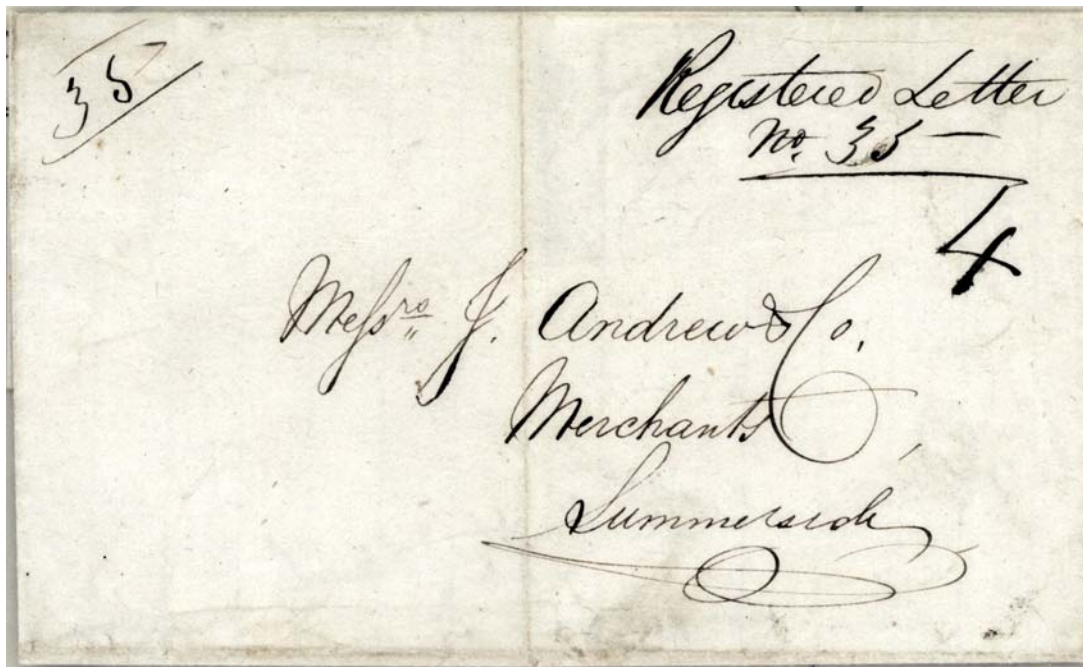 35
Registered Letter
No. 35 —
4
Messrs. J. Andrew & Co.
Merchants,
Summerside